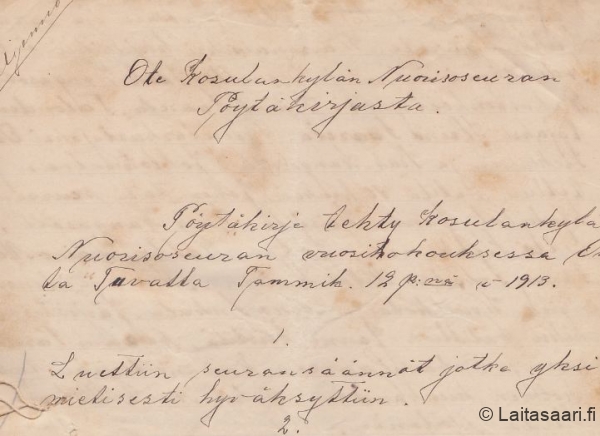 Ote Kosulankylän Nuorisoseuran
Pöytäkirjasta.
Pöytäkirja tehty Kosulankylä
Nuorisoseuran vuosikokouksessa
ta Tuvalla Tammik. 12 p:nä v 1913.
1.
Luettiin seuransäännöt jotka yksi
mielisesti hyväksyttiin.
2.
© Laitasaari.fi